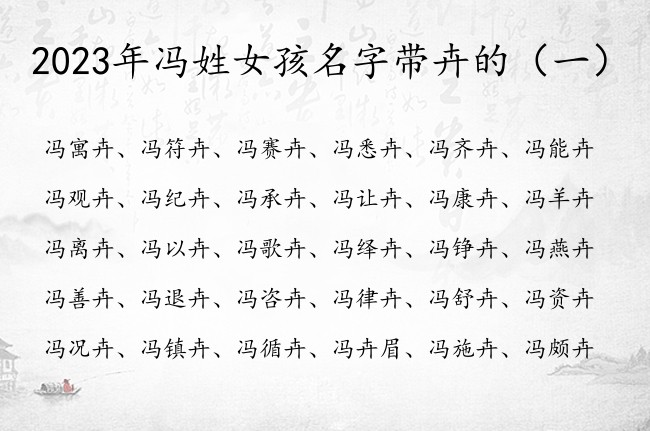 2023年冯姓女孩名字带卉的（一）
冯寓卉、冯符卉、冯赛卉、冯悉卉、冯齐卉、冯能卉
冯观卉、冯纪卉、冯承卉、冯让卉、冯康卉、冯羊卉
冯离卉、冯以卉、冯歌卉、冯绎卉、冯铮卉、冯燕卉
冯善卉、冯退卉、冯咨卉、冯律卉、冯舒卉、冯资卉
冯况卉、冯镇卉、冯循卉、冯卉眉、冯施卉、冯颇卉